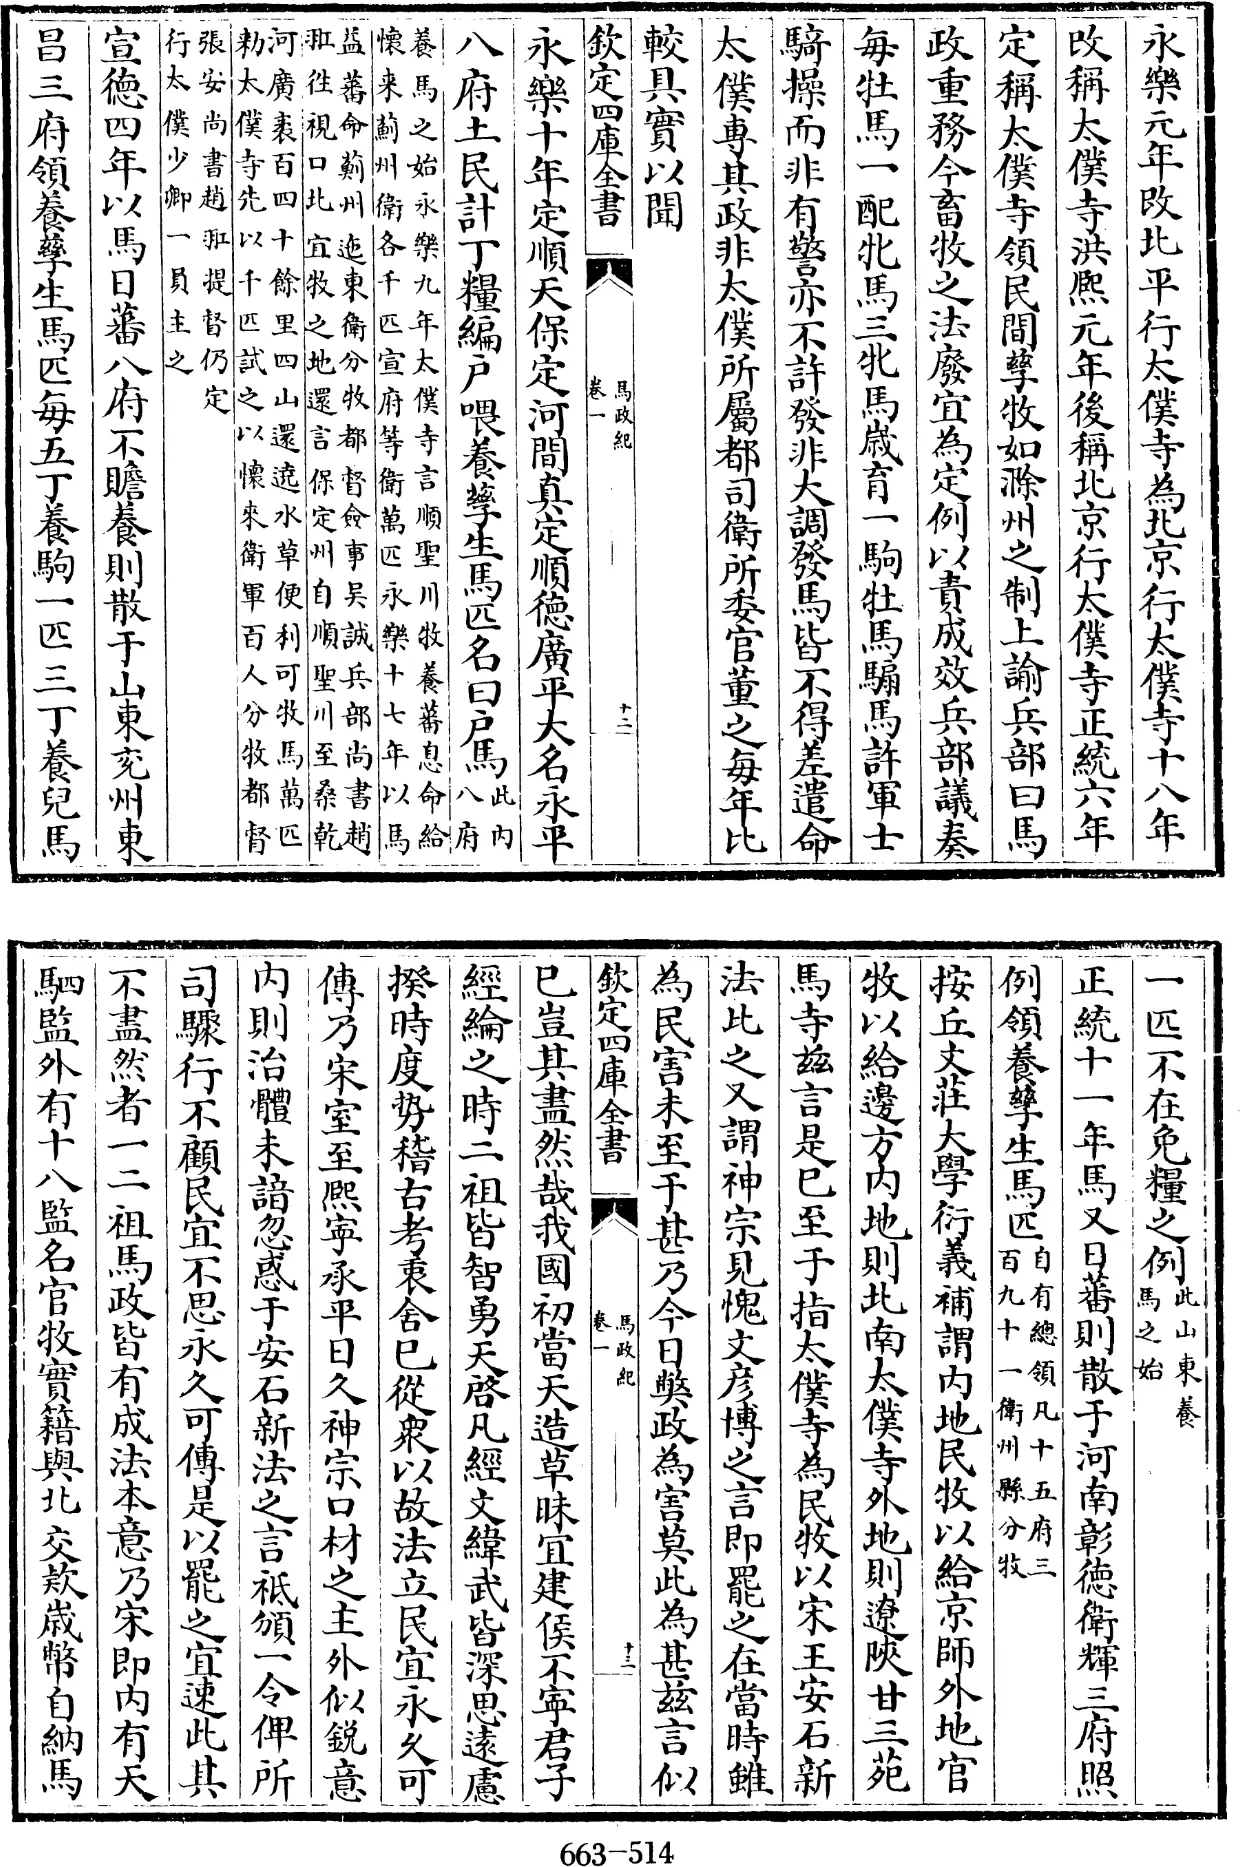 永樂元年改北平行太僕寺為北京行太僕寺十八年
改稱太僕寺洪熙元年後稱北京行太僕寺正統六年
定稱太僕寺領民間孳牧如滁州之制上諭兵部曰馬
政重務今畜牧之法廢宜為定例以責成效兵部議奏
每牡馬一配牝馬三牝馬歲育一駒牡馬騸馬許軍士
騎操而非有警亦不許發非大調發馬皆不得差遣命
太僕專其政非太僕所屬都司衛所委官董之每年比
較具實以聞
欽定四庫全書
馬政紀
卷一
十二
永樂十年定順天保定河間真定順德廣平大名永平
八府土民計丁糧編戶喂養孳生馬匹名曰戶馬此內
八府
養馬之始永樂九年太僕寺言順聖川牧養蕃息命給
懷來薊州衛各千匹宣府等衛萬匹永樂十七年以馬
益蕃命薊州迤東衛分牧都督僉事吳誠兵部尚書趙
羾往視口北宜牧之地還言保定州自順聖川至桑乾
河廣袤百四十餘里四山還遶水草便利可牧馬萬匹
勅太僕寺先以千匹試之以懷來衛軍百人分牧都督
張安尚書趙羾提督仍定
行太僕少卿一員主之
宣德四年以馬日蕃八府不贍養則散于山東兗州東
昌三府領養孳生馬匹每五丁養駒一匹三丁養兒馬
一匹不在免糧之例此山東養
馬之始
正統十一年馬又日蕃則散于河南彰德衛輝三府照
例領養孳生馬匹自有總領凡十五府三
百九十一衛州縣分牧
按丘文莊大學衍義補謂內地民牧以給京師外地官
牧以給邊方內地則北南太僕寺外地則遼陝甘三苑
馬寺茲言是已至于指太僕寺為民牧以宋王安石新
法比之又謂神宗見愧文彥博之言即罷之在當時雖
為民害未至于甚乃今日獘政為害莫此為甚茲言似
欽定四庫全書
馬政紀
卷一
十三
已豈其盡然哉我國初當天造草昧宜建侯不寧君子
經綸之時二祖皆智勇天啓凡經文緯武皆深思遠慮
揆時度勢稽古考衷舍已從衆以故法立民宜永久可
傳乃宋室至熙寧承平日久神宗口材之主外似銳意
內則治體未諳忽惑于安石新法之言祇頒一令俾所
司驟行不顧民宜不思永久可傳是以罷之宜速此其
不盡然者一二祖馬政皆有成法本意乃宋即內有天
駟監外有十八監名官牧實籍與北交欵歲幣自納馬
663-514